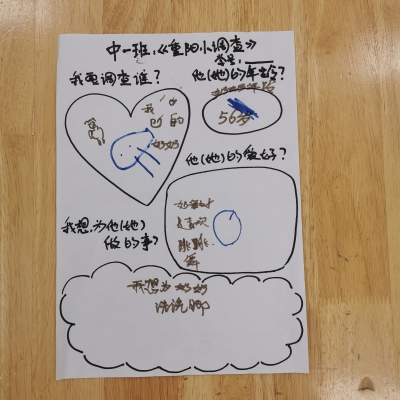 中一班,《重阳小调查》
学号:
我要调查谁?
他(她)的年龄?
我
自己的
奶奶
56岁
他(她)的爱好?
喜欢
跳跳
舞
我想,为他(她)
做的事?
我想为奶奶
洗洗脚